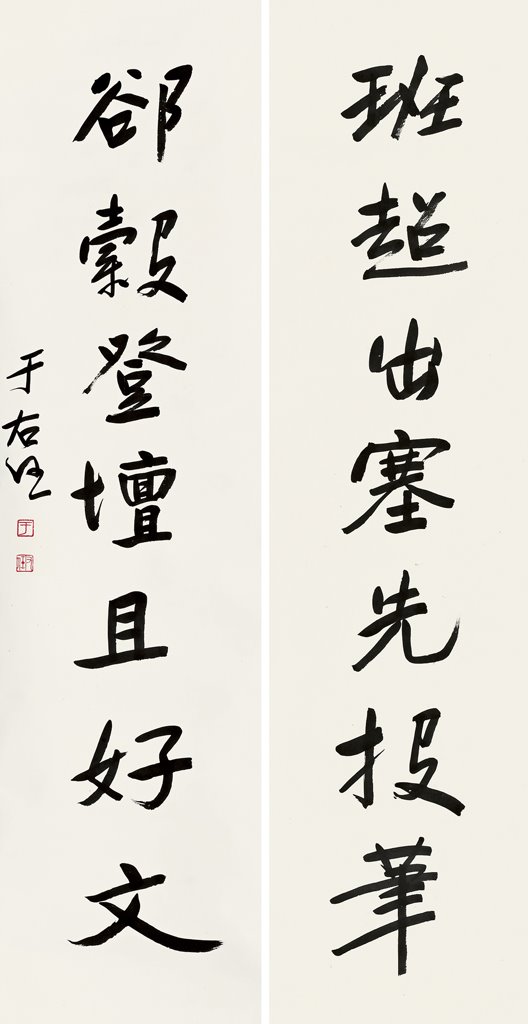 班超出塞先投筆
郤縠登壇且好文
于右任